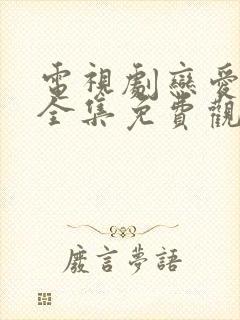 電視劇戀愛
全集免費觀
廢言夢語